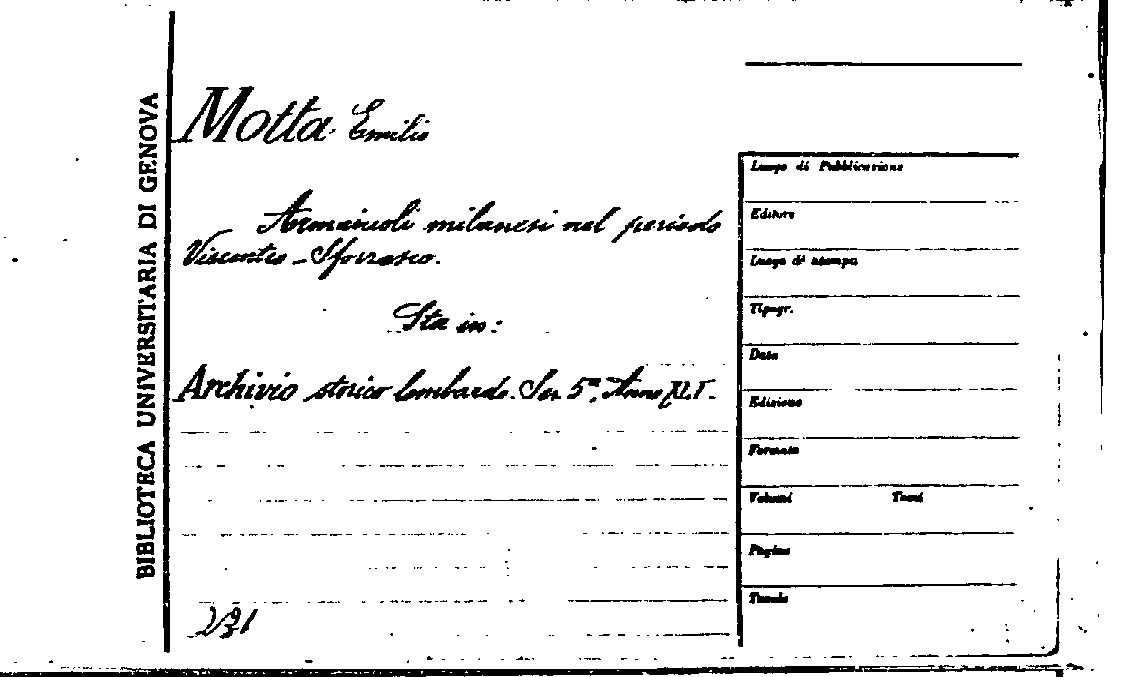 BIBLIOTECA UNIVERSITARIA DI GENOVA
Motta Emilio
Armaiuoli milanesi nel periodo
Visconteo-Sforzesco.
Sta in:
Archivio storico lombardo. Ser. 5ª, Anno XLI.
Luogo di Pubblicazione
Editore
Luogo di stampa
Tipogr.
Data
Edizione
Formato
Volumi Tomi
Pagine
Tavole